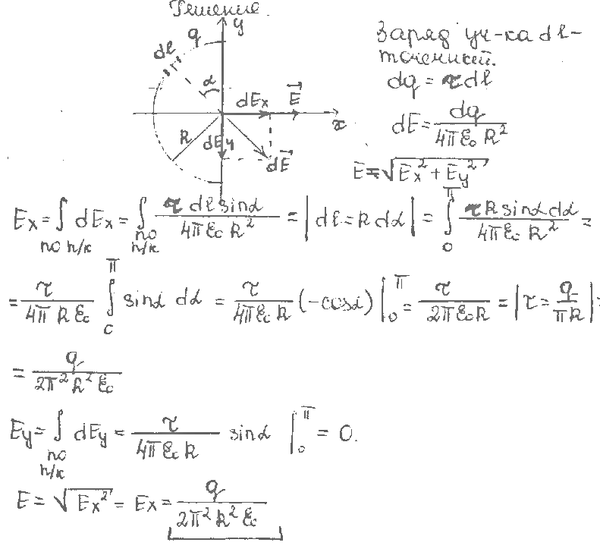 Решение.
Заряд уч-ка dl-
точечный.
dq = τdl
dE = dq / 4πε₀R²
E = √(Ex² + Ey²)
y
dl
q
α
dEx
E⃗
x
R
dEy
dE⃗
Ex = ∫ по п/к dEx = ∫ по п/к τ dl sinα / 4πε₀R² = |dl = R dα| = ∫₀^π τR sinα dα / 4πε₀R² =
= τ / 4πRε₀ ∫₀^π sinα dα = τ / 4πε₀R (-cosα) |₀^π = τ / 2πε₀R = |τ = q / πR| =
= q / 2π²R²ε₀
Ey = ∫ по п/к dEy = τ / 4πε₀R sinα |₀^π = 0.
E = √Ex² = Ex = q / 2π²R²ε₀